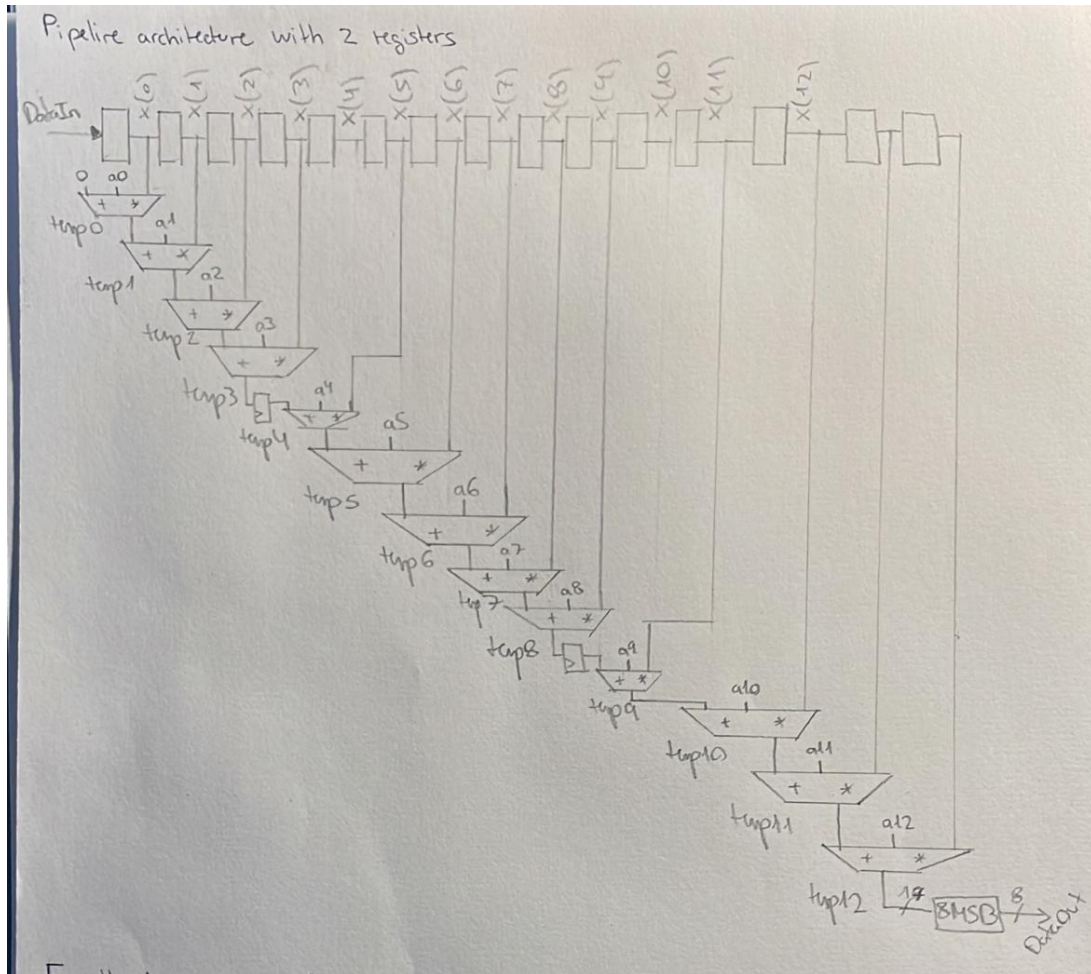 Pipeline architecture with 2 registers
DataIn
x(0) x(1) x(2) x(3) x(4) x(5) x(6) x(7) x(8) x(9) x(10) x(11) x(12)
0 a0
+ *
temp0
a1
+ *
temp1
a2
+ *
temp2
a3
+ *
temp3
a4
+ *
temp4
a5
+ *
temp5
a6
+ *
temp6
a7
+ *
temp7
a8
+ *
temp8
a9
+ *
temp9
a10
+ *
temp10
a11
+ *
temp11
a12
+ *
temp12
8MSB
8
DataOut